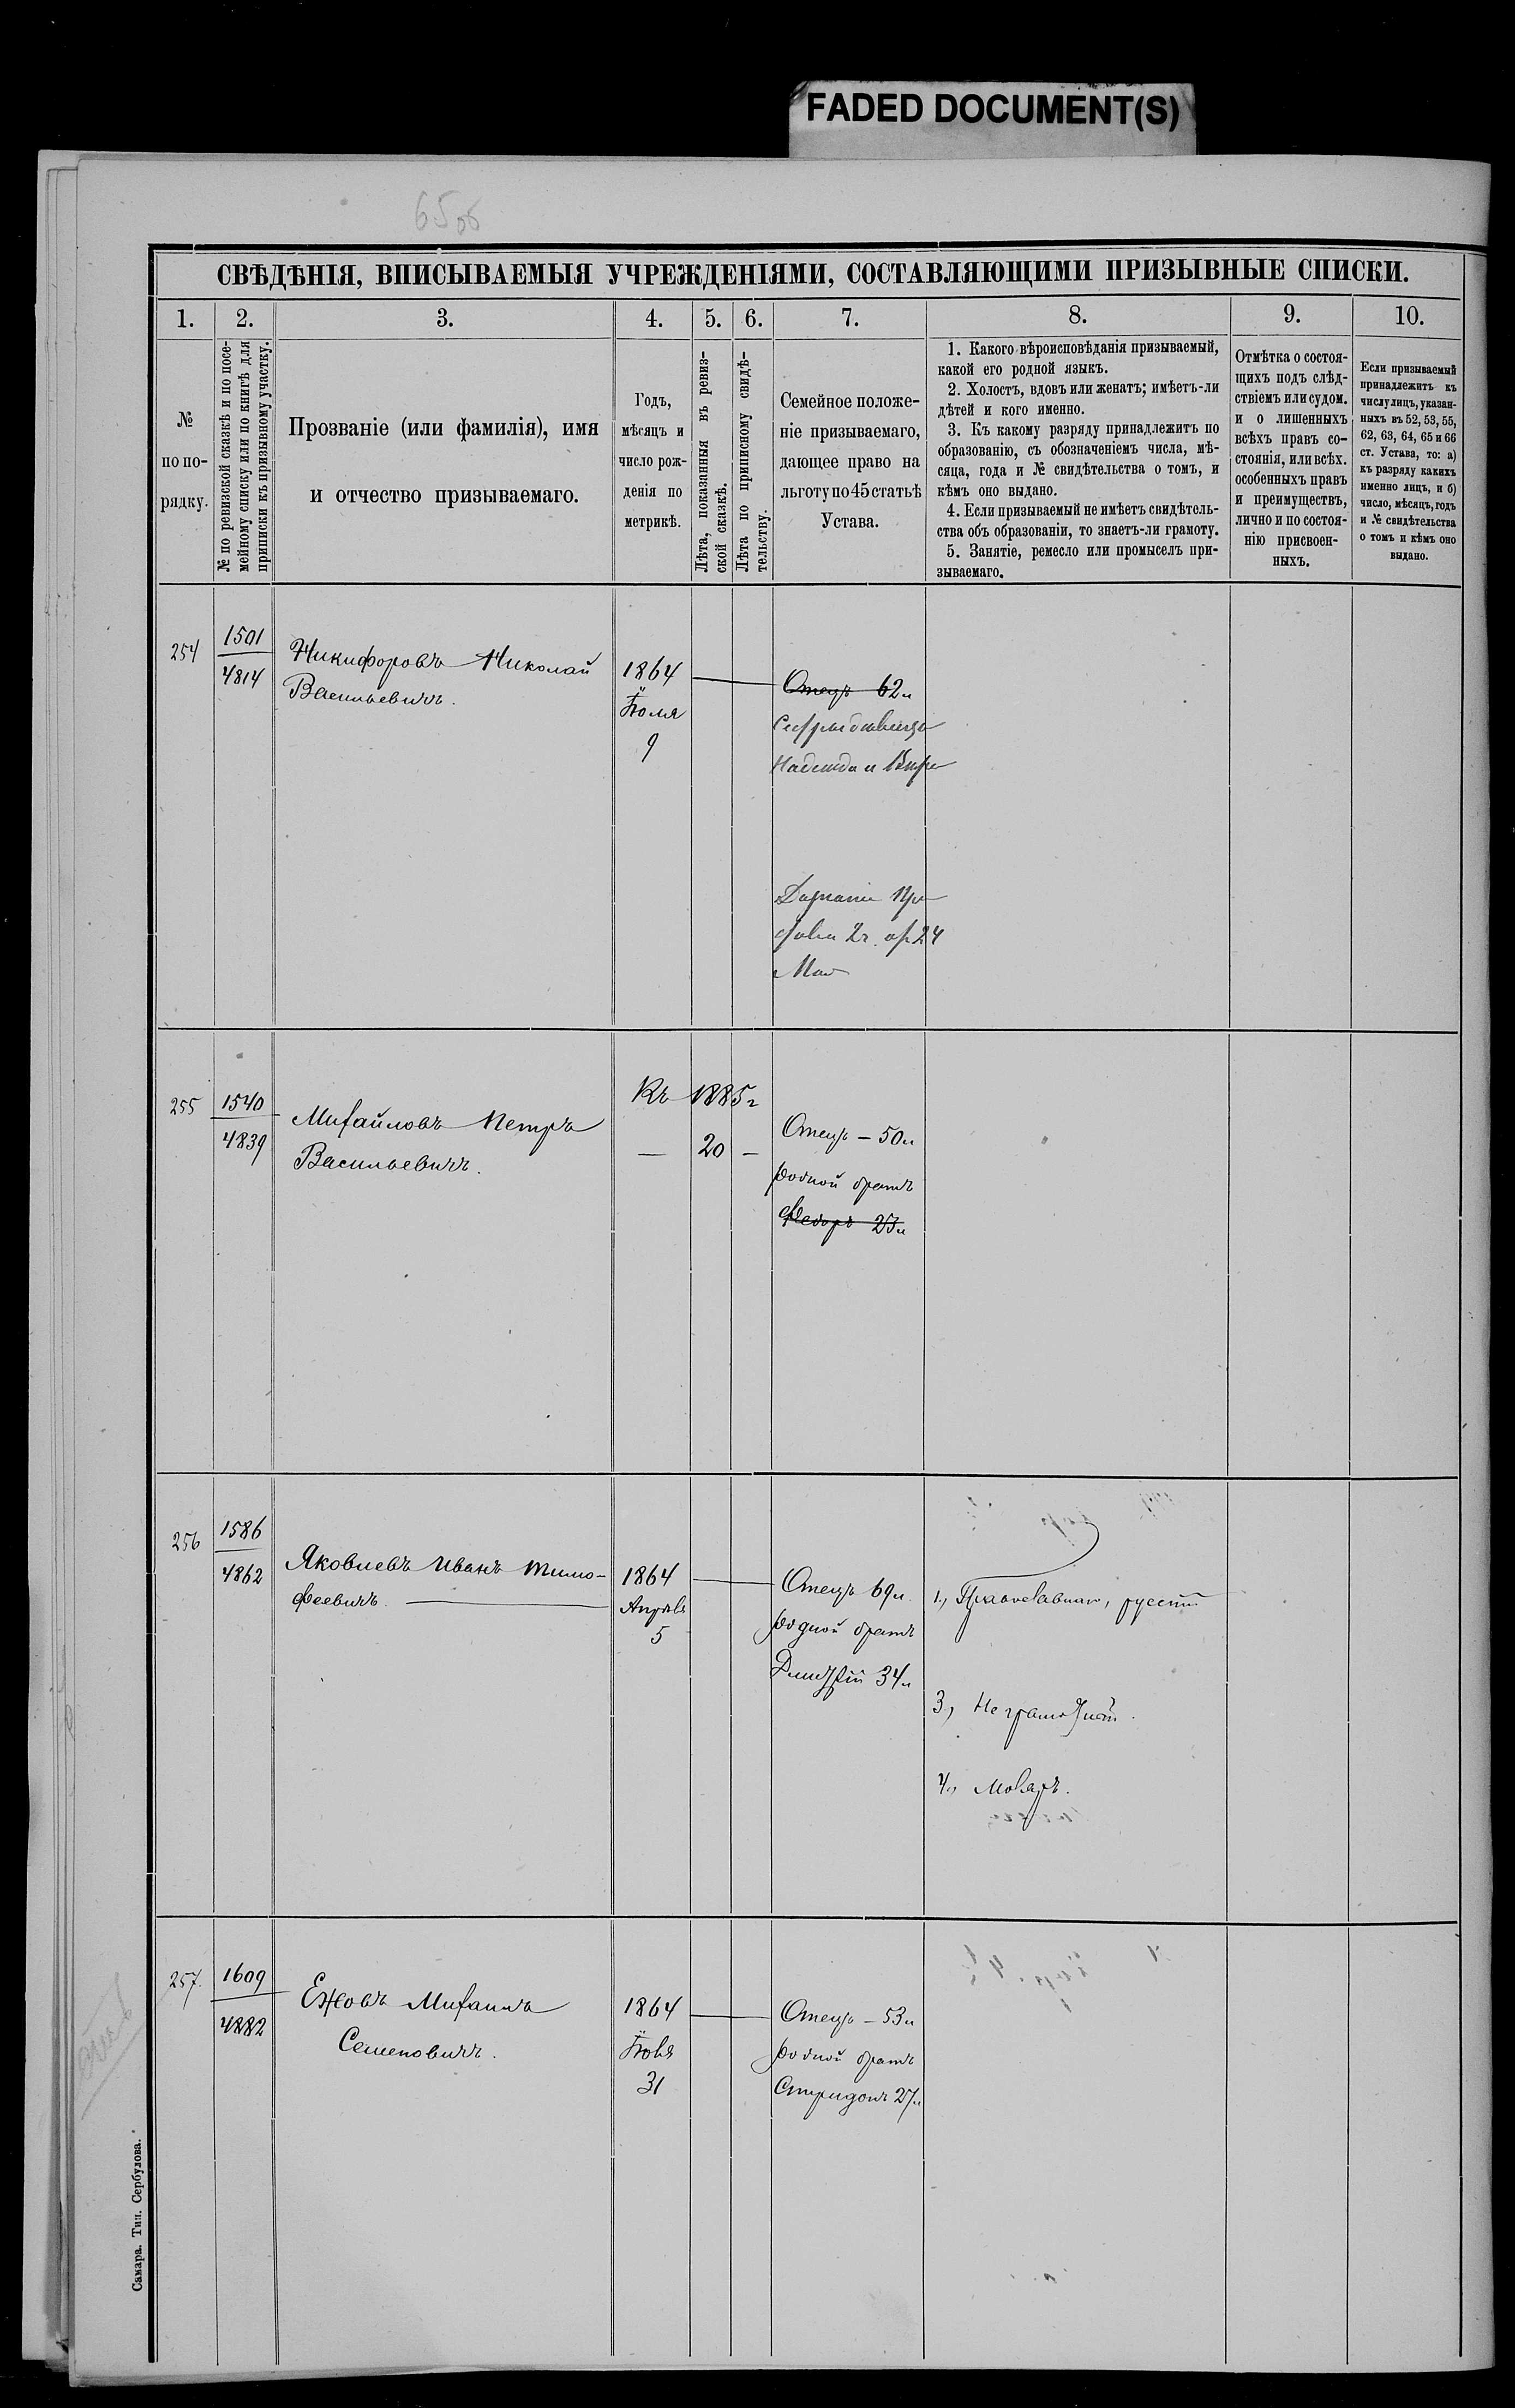 FADED DOCUMENT(S)
65об
СВѢДѢНІЯ, ВПИСЫВАЕМЫЯ УЧРЕЖДЕНІЯМИ, СОСТАВЛЯЮЩИМИ ПРИЗЫВНЫЕ СПИСКИ.
1. 2. 3. 4. 5. 6. 7. 8. 9. 10.
№
по по-
рядку.
№ по ревизской сказкѣ и по посе-
мейному списку или по книгѣ для
приписки къ призывному участку.
Прозваніе (или фамилія), имя
и отчество призываемаго.
Годъ,
мѣсяцъ и
число рож-
денія по
метрикѣ.
Лѣта, показанныя въ ревиз-
ской сказкѣ.
Лѣта по приписному свидѣ-
тельству.
Семейное положе-
ніе призываемаго,
дающее право на
льготу по 45 статьѣ
Устава.
1. Какого вѣроисповѣданія призываемый,
какой его родной языкъ.
2. Холостъ, вдовъ или женатъ; имѣетъ-ли
дѣтей и кого именно.
3. Къ какому разряду принадлежитъ по
образованію, съ обозначеніемъ числа, мѣ-
сяца, года и № свидѣтельства о томъ, и
кѣмъ оно выдано.
4. Если призываемый не имѣетъ свидѣтель-
ства объ образованіи, то знаетъ-ли грамоту.
5. Занятіе, ремесло или промыселъ при-
зываемаго.
Отмѣтка о состоя-
щихъ подъ слѣд-
ствіемъ или судом.
и о лишенныхъ
всѣхъ правъ со-
стоянія, или всѣх.
особенныхъ правъ
и преимуществъ,
лично и по состоя-
нію присвоен-
ныхъ.
Если призываемый
принадлежитъ къ
числу лицъ, указан-
ныхъ въ 52, 53, 55,
62, 63, 64, 65 и 66
ст. Устава, то: а)
къ разряду какихъ
именно лицъ, и б)
число, мѣсяцъ, годъ
и № свидѣтельства
о томъ и кѣмъ оно
выдано.
254
1501
4814
Никифоровъ Николай
Васильевичъ.
1864
Іюля
9
Отецъ 62л
Надежда и
24
Мая
255
1540
4839
Михайловъ Петръ
Васильевичъ.
Къ 1885г
— 20 —
Отецъ – 50л
родной братъ
Федоръ 23л
256
1586
4862
Яковлевъ Иванъ Тимо-
феевичъ.
1864
Апрѣля
5
Отецъ 69л.
родной братъ
Дмитрій 34л
1., Православнаго, русскій
3., Неграмотный.
4.,
257.
1609
4882
Ежовъ Михаилъ
Семеновичъ.
1864
Іюля
31
Отецъ – 53л
родной братъ
Спиридонъ 27л
Самара. Тип. Сербулова.